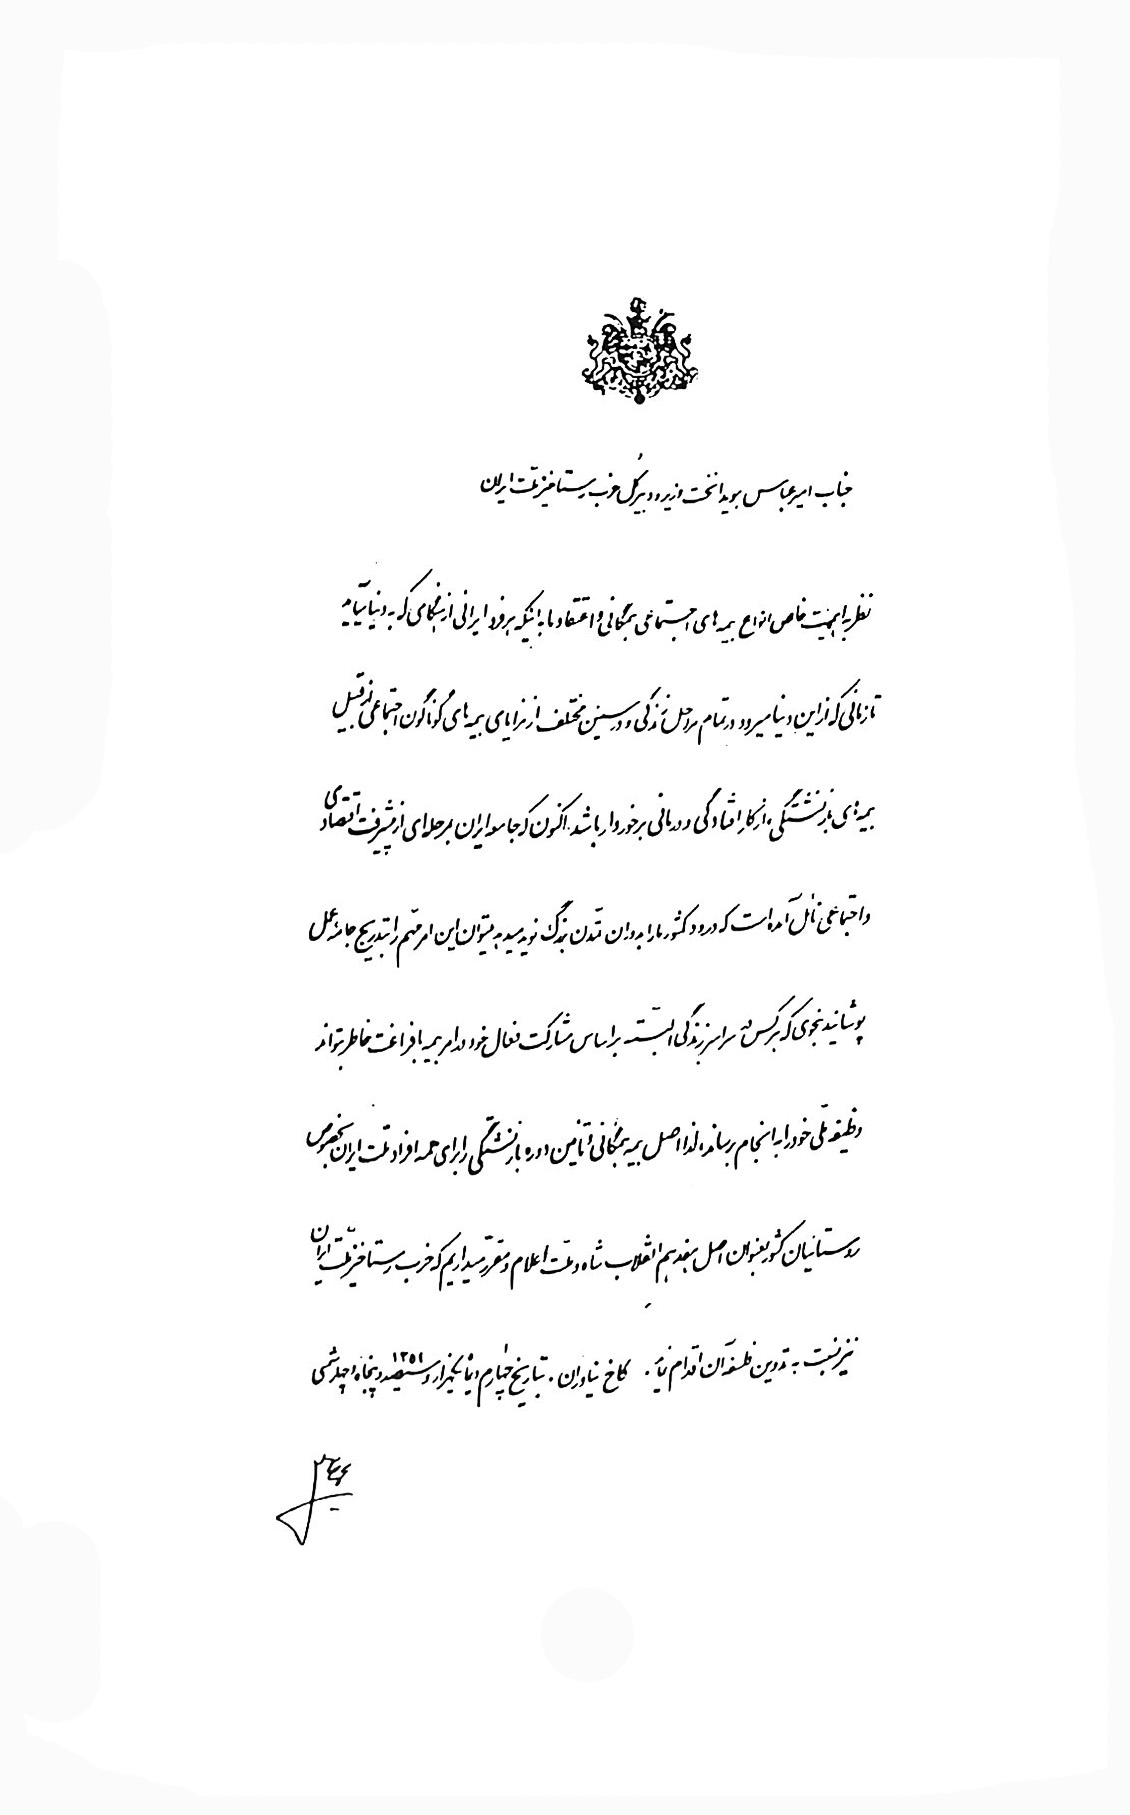 جناب امیرعباس هویدا نخست وزیر و دبیرکل حزب رستاخیز ملت ایران
نظر به اهمیت خاص انواع بیمه های اجتماعی همگانی و اعتقاد ما به اینکه هر فرد ایرانی از هنگامی که به دنیا میآید
تا زمانی که از این دنیا میرود در تمام مراحل زندگی و در سنین مختلف از مزایای بیمه های گوناگون اجتماعی از قبیل
بیمه های بازنشستگی، از کار افتادگی و درمانی برخوردار باشد. اکنون که جامعه ایران بمرحله ای از پیشرفت اقتصادی
و اجتماعی نائل آمده است که ورود کشور ما را به دوران تمدن بزرگ نوید میدهد میتوان این امر مهم را بتدریج جامه عمل
پوشانید بنحوی که هر کس در سراسر زندگی البته بر اساس مشارکت فعال خود در امر بیمه با فراغت خاطر بتواند
وظیفه ملی خود را به انجام برساند، لذا اصل بیمه همگانی و تأمین دوره بازنشستگی را برای همه افراد ملت ایران بخصوص
روستائیان کشور بعنوان اصل هفدهم انقلاب شاه و ملت اعلام و مقرر میداریم که حزب رستاخیز ملت ایران
نیز نسبت به تدوین فلسفه آن اقدام نماید. کاخ نیاوران. بتاریخ چهارم دیماه یکهزار و سیصد و پنجاه و چهار شمسی